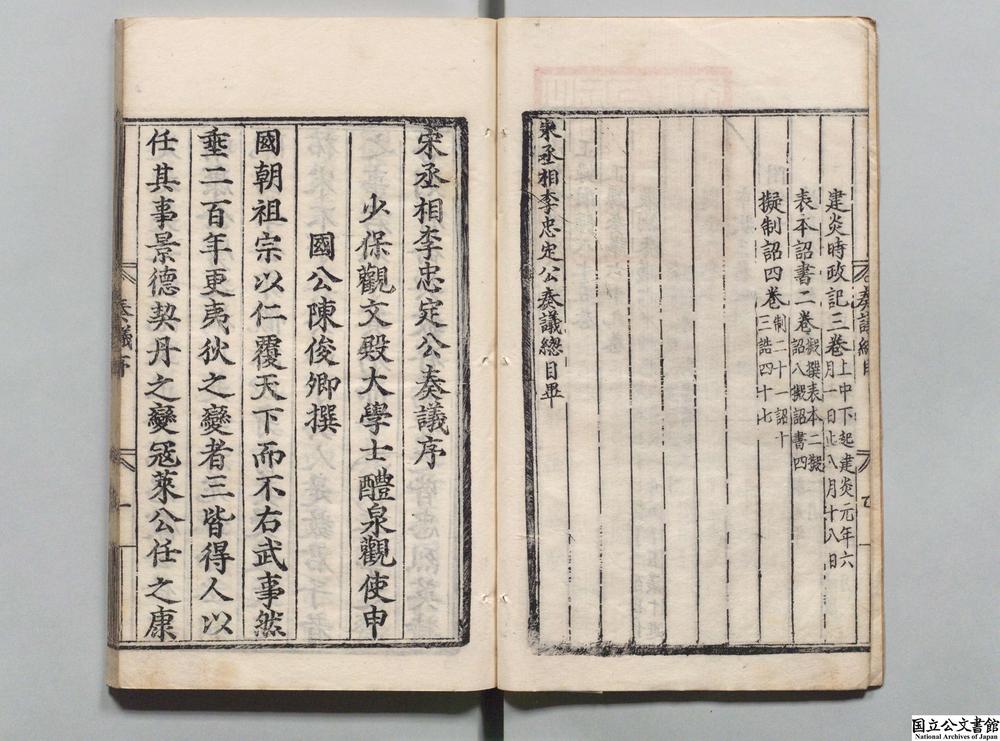 建炎時政記三卷上中下起建炎元年六
月一日止八月十八日
表本詔書二卷擬撰表本二擬
詔八擬詔書四
擬制詔四卷制二十一詔十
三誥四十七
宋丞相李忠定公奏議總目畢
宋丞相李忠定公奏議序
少保觀文殿大學士醴泉觀使申
國公陳俊卿撰
國朝祖宗以仁覆天下而不右武事然
垂二百年更夷狄之變者三皆得人以
任其事景德契丹之變寇萊公任之康
奏議序
一
国立公文書館
National Archives of Japan